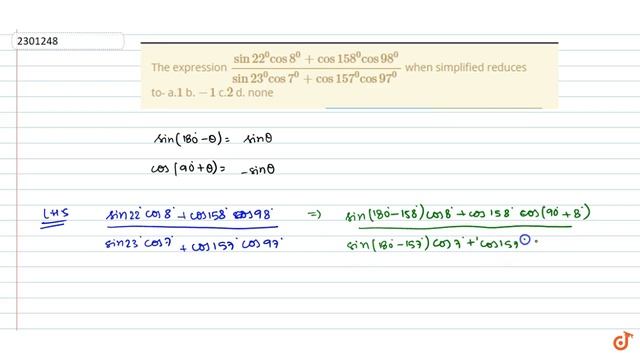 2301248
The expression sin 22⁰ cos 8⁰ + cos 158⁰ cos 98⁰ / sin 23⁰ cos 7⁰ + cos 157⁰ cos 97⁰ when simplified reduces
to- a.1 b. −1 c.2 d. none
sin(180°−θ) = sinθ
cos(90°+θ) = −sinθ
LHS sin22° cos8° + cos158° cos98° / sin23° cos7° + cos157° cos97° ⇒ sin(180°−158°) cos8° + cos158° cos(90°+8°) / sin(180°−157°) cos7° + cos157°